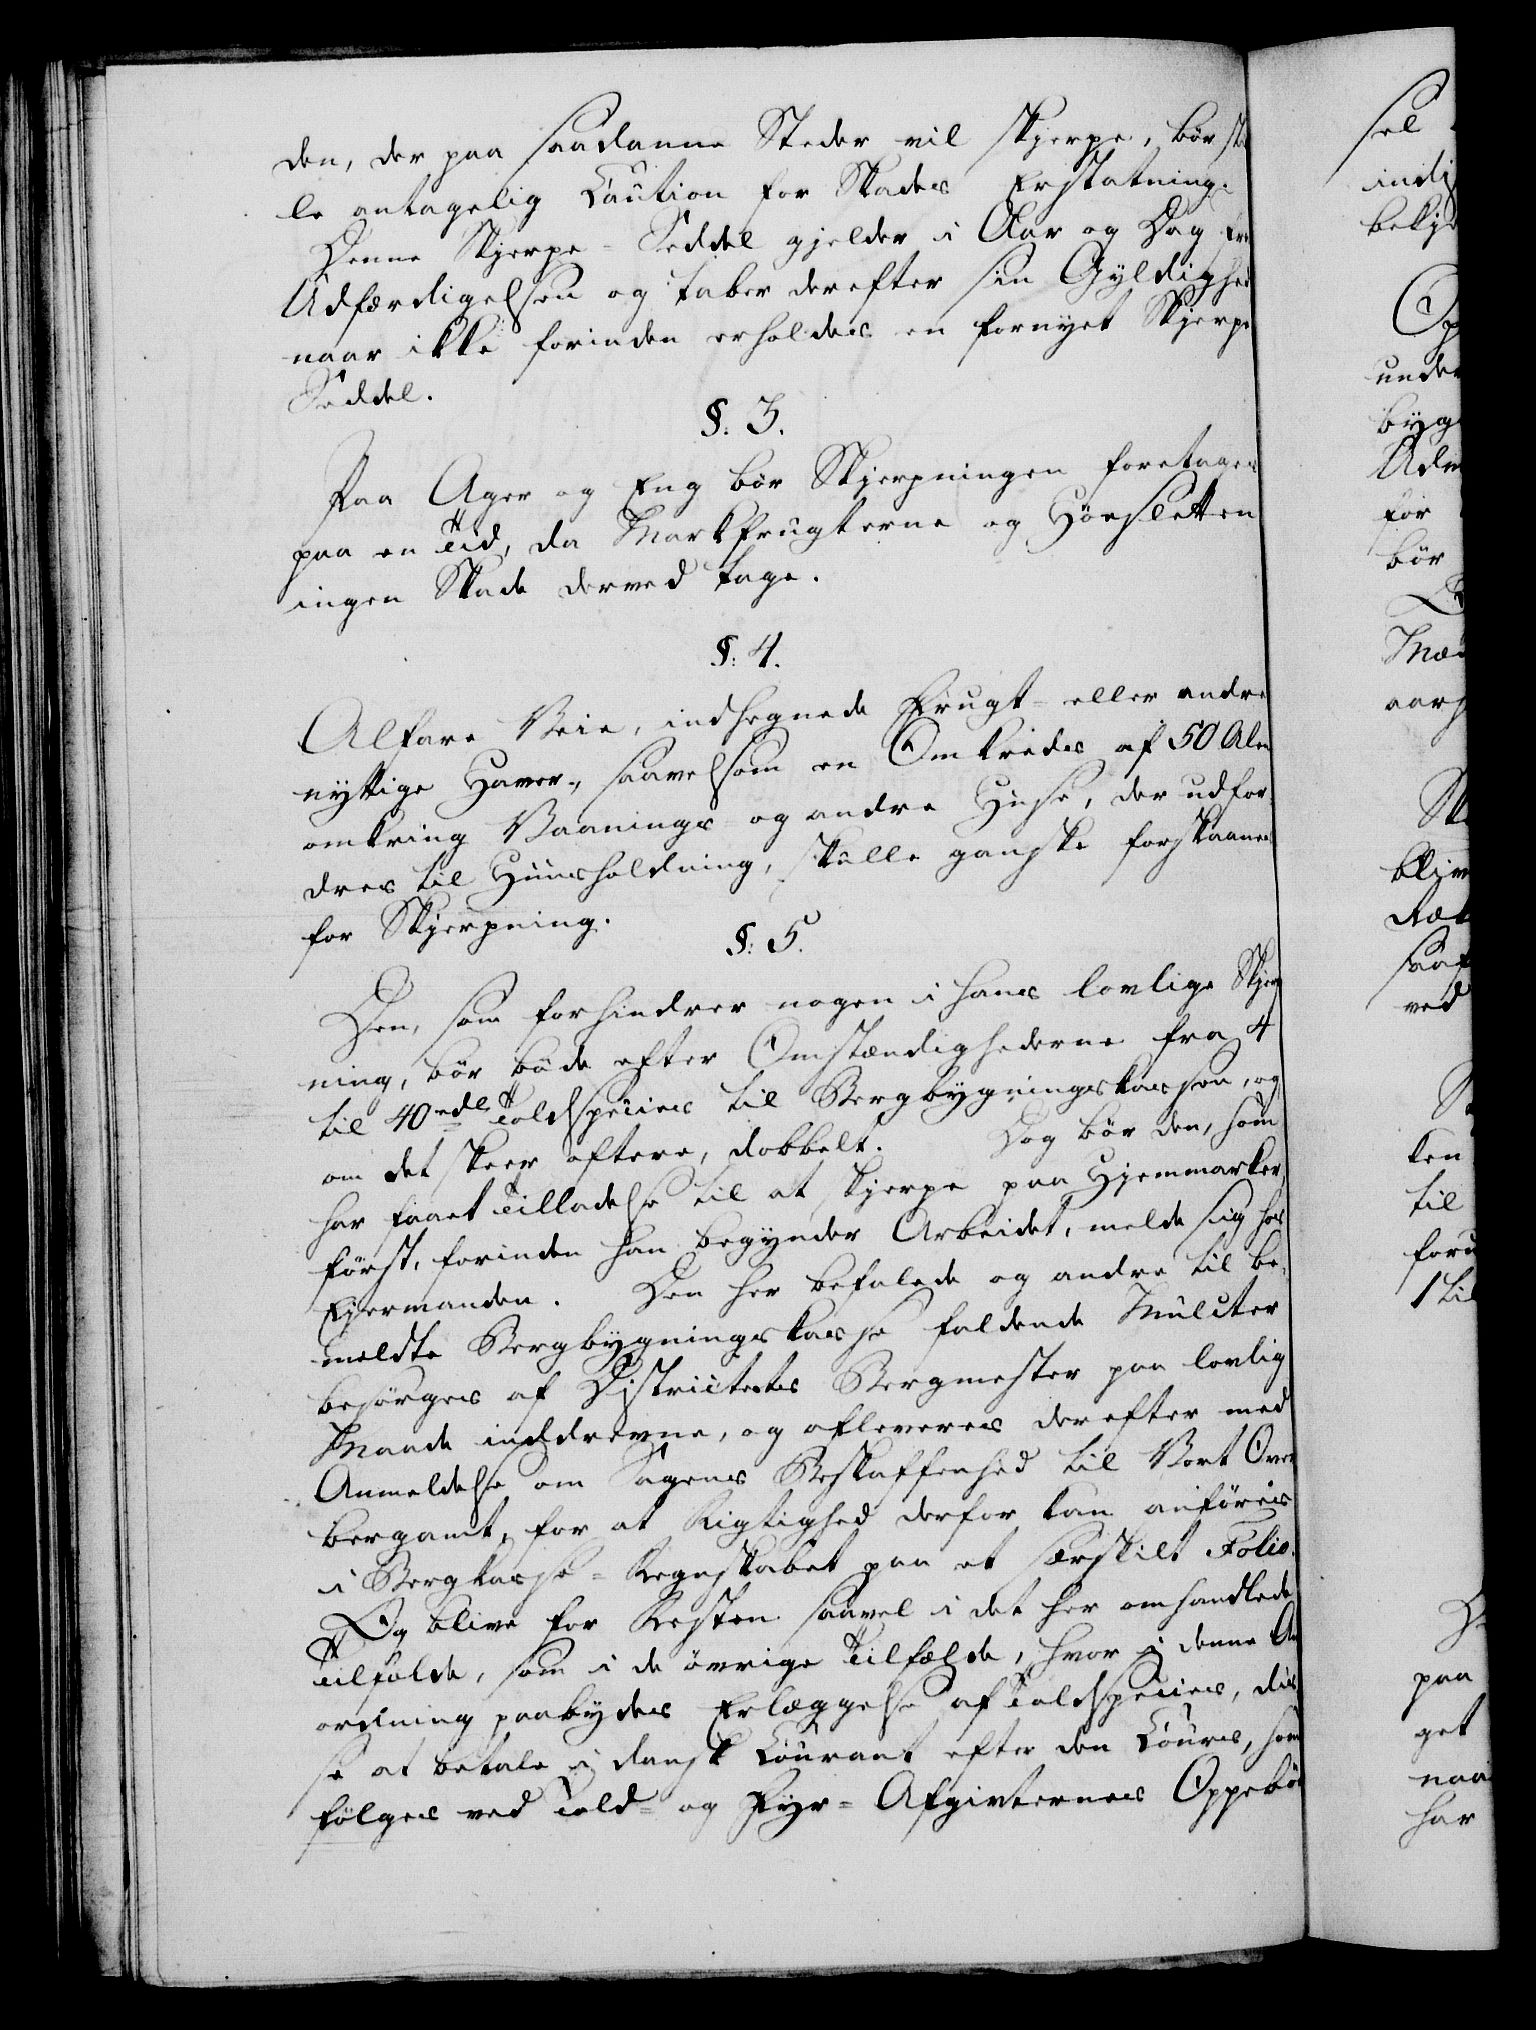 den, der paa saadanne Steder vil skjerpe, bør stil
le antagelig Caution for Skades Erstatning.
Denne Skjerpe-Seddel gjelder i Aar og Dag fra
Udfærdigelsen og taber derefter sin Gyldighed
naar ikke forinden erholdes en fornyet Skjerpe
Seddel.
§: 3.
Paa Ager og Eng bør Skjerpningen foretages
paa en Tid, da Markfrugterne og Høesletten
ingen Skade derved tage.
§: 4.
Alfare Veie, indhegnede Frugt- eller andre
nyttige Haver, saavelsom en Omkreds af 50 Alen
omkring Vaanings- og andre Huse, der udfor
dres til Huusholdning, skulle ganske forskaanes
for Skjerpning.
§: 5.
Den, som forhindrer nogen i hans lovlige Skjerp
ning, bør bøde efter Omstændighederne fra 4
til 40 rdl Toldspecies til Bergbygningskassen, og
om det skeer oftere, dobbelt. Dog bør den, som
har faaet Tilladelse til at skjerpe paa Hjemmarker,
først, forinden han begynder Arbeidet, melde sig hos
Ejermanden. Den her befalede og andre til be-
meldte Bergbygningskasse faldende Mulcter
besørges af Districtets Bergmester paa lovlig
Maade inddrevne, og afleveres derefter med
Anmeldelse om Sagens Beskaffenhed til Vort Over
bergamt, for at Rigtighed derfor kan anføres
i Bergkasse-Regnskabet paa et særskilt Folio.
Og blive for Resten saavel i det her omhandlede
Tilfælde, som i de øvrige Tilfælde, hvor i denne An
ordning paabydes Erlæggelse af Toldspecies, dis
se at betale i dansk Courant efter den Cours, som
følges ved Told- og Fyr-Afgivternes Oppebør
sel
indj
bekje
Op
under
byg
Adm
for
bør
Mæ
aars
Sk
bliv
ræt
saaf
ved
ken
til
foru
1 til
paa
get
naa
har